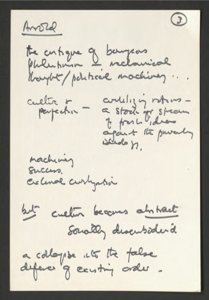 3
Arnold
the critique of bourgeois
philistinism — mechanical
thought / political machinery . . .
culture &
perfection —
civilizing notions —
a stock or stream
of fresh ideas
against the
machinery
success,
external civilization
but culture becomes abstract
socially disembodied
a collapse into the false
defence of existing order.